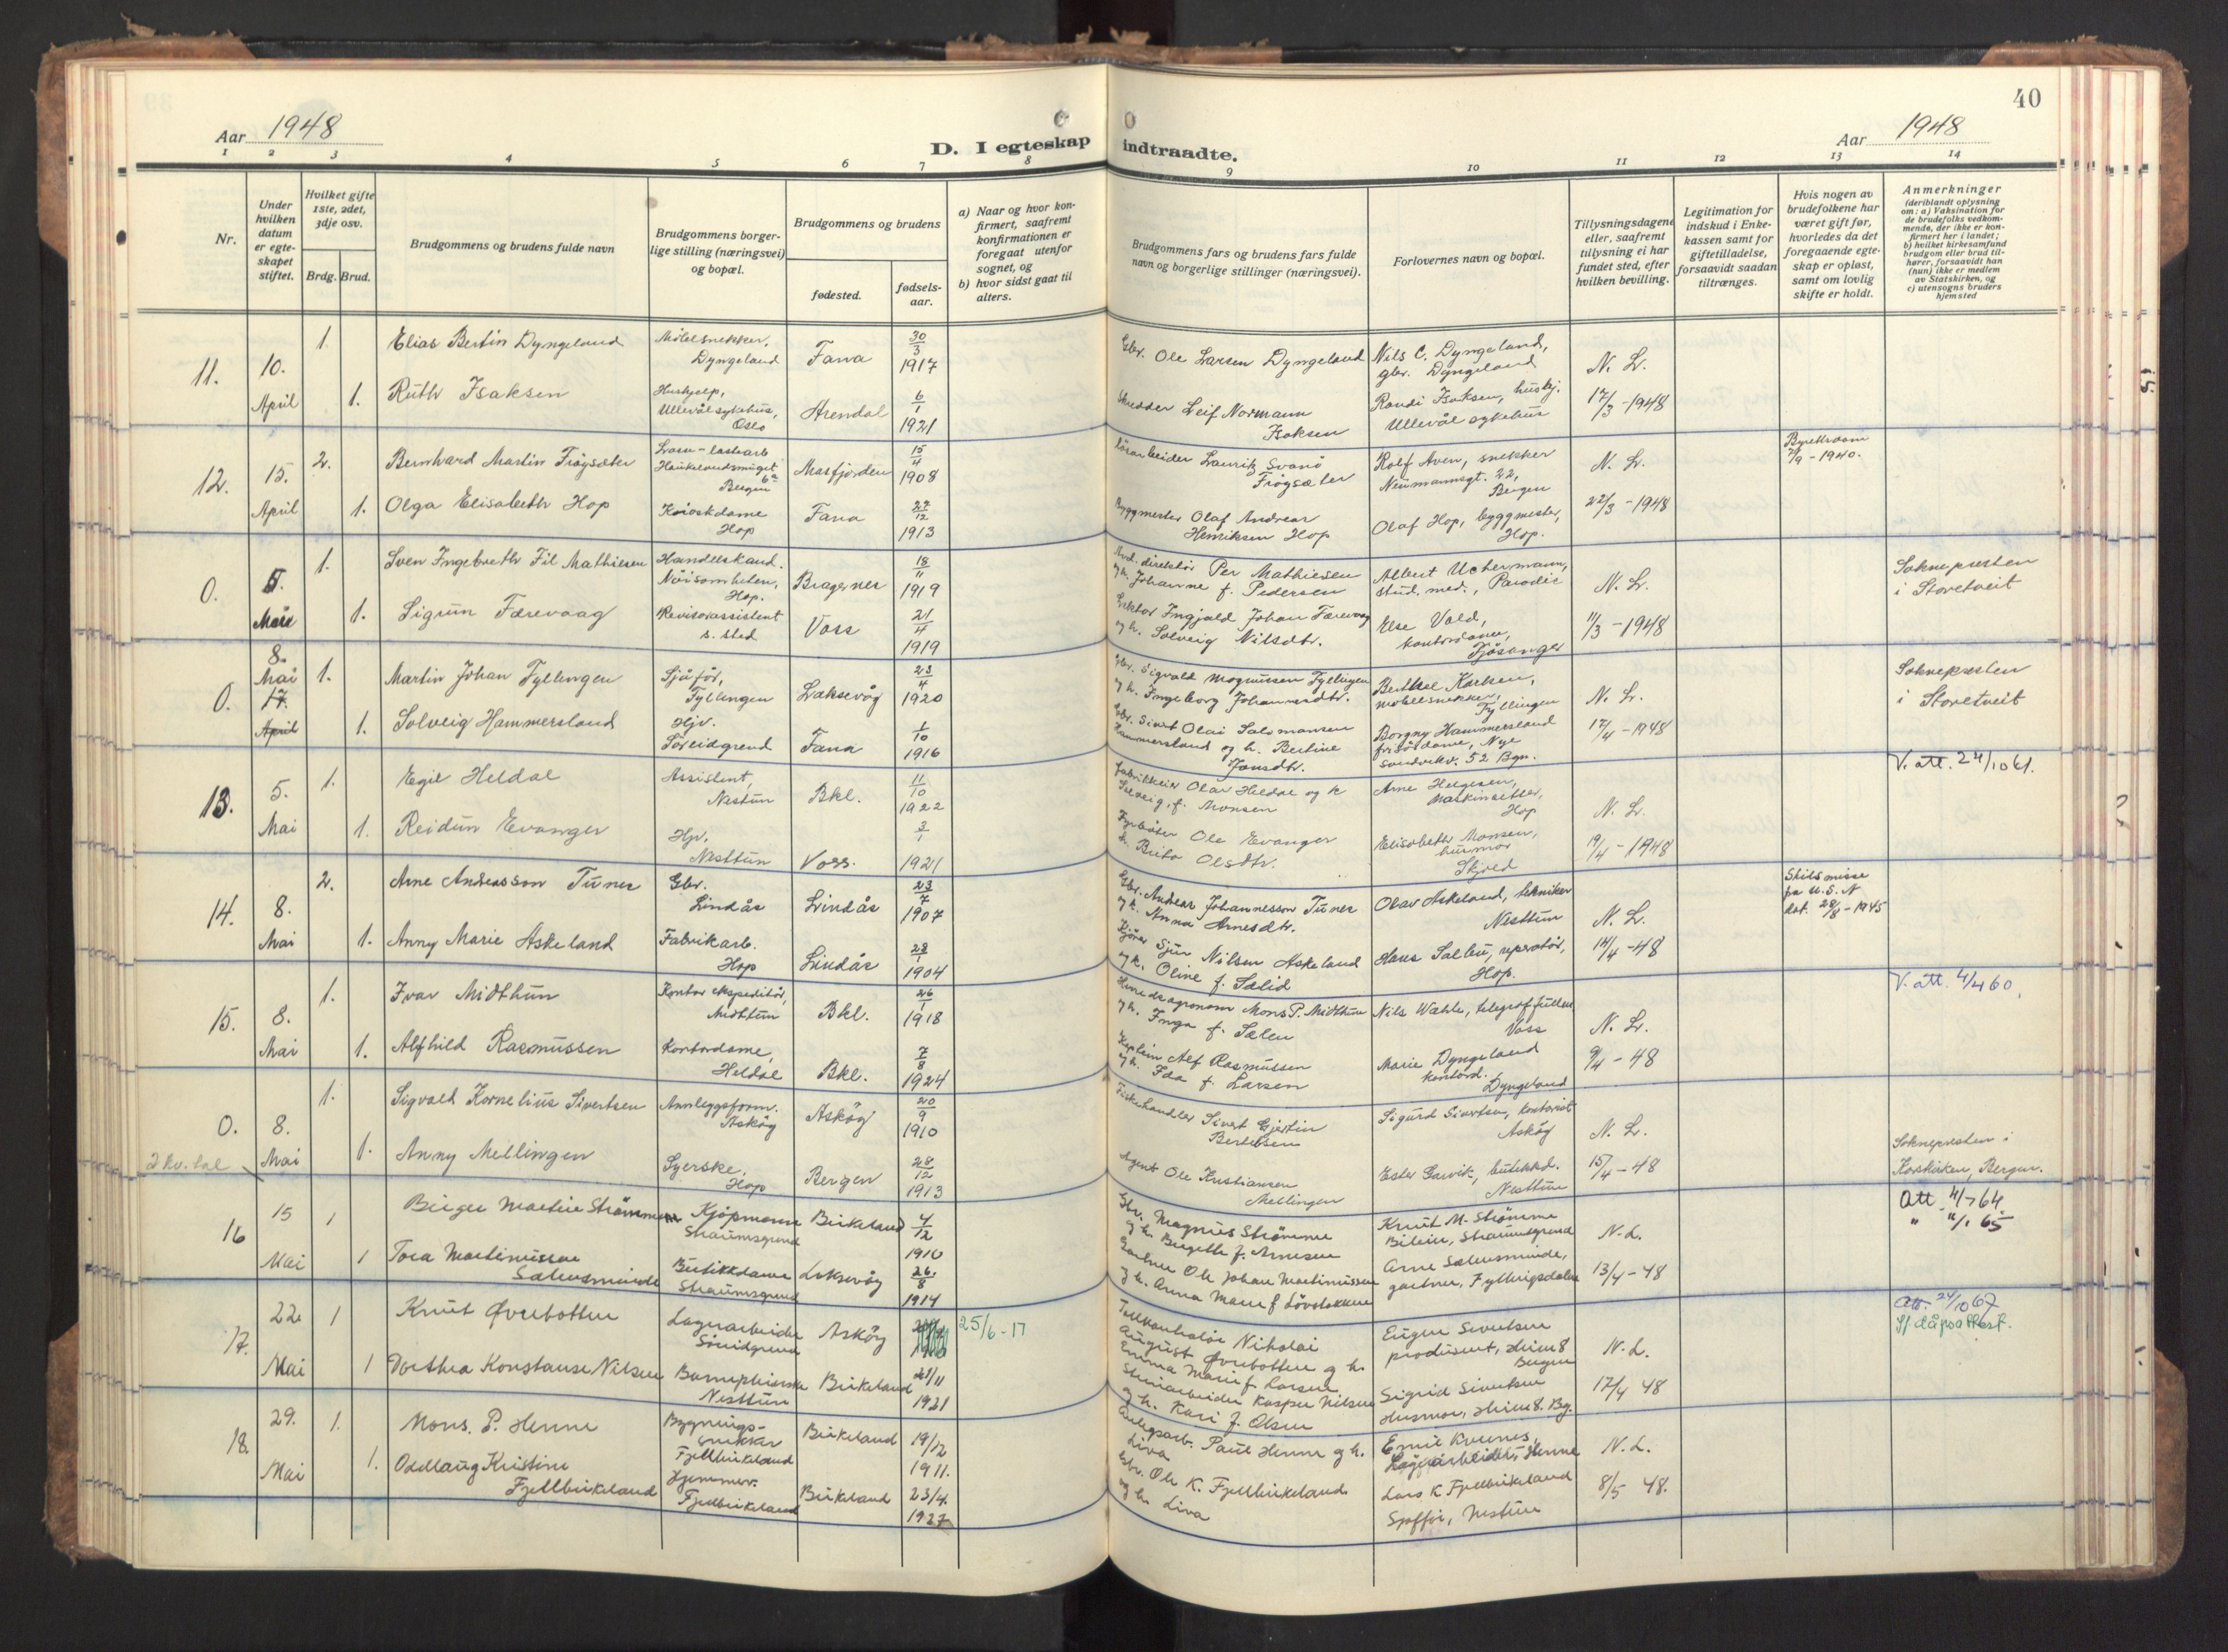 Aar 1948
D. I egteskap
1 2 3 4 5 6 7 8
Nr.
Under hvilken datum er egteskapet stiftet.
Hvilket gifte 1ste, 2det, 3dje osv.
Brdg. Brud.
Brudgommens og brudens fulde navn
Brudgommens borgerlige stilling (næringsvei) og bopæl.
Brudgommens og brudens
fødested.
fødselsaar.
a) Naar og hvor konfirmert, saafremt konfirmationen er foregaat utenfor sognet, og
b) hvor sidst gaat til alters.
40
indtraadte.
Aar 1948
9 10 11 12 13 14
Brudgommens fars og brudens fars fulde navn og borgerlige stillinger (næringsvei).
Forlovernes navn og bopæl.
Tillysningsdagene eller, saafremt tillysning ei har fundet sted, efter hvilken bevilling.
Legitimation for indskud i Enkekassen samt for giftetilladelse, forsaavidt saadan tiltrænges.
Hvis nogen av brudefolkene har været gift før, hvorledes da det foregaaende egteskap er opløst, samt om lovlig skifte er holdt.
Anmerkninger (deriblandt oplysning om: a) Vaksination for de brudefolks vedkommende, der ikke er konfirmert her i landet; b) hvilket kirkesamfund brudgom eller brud tilhører, forsaavidt han (hun) ikke er medlem av Statskirken, og c) utensogns bruders hjemsted
11. 10. April 1. Elias Bertin Dyngeland Møbelsnekker, Dyngeland Fana 30/3 1917
Gbr. Ole Larsen Dyngeland Nils C. Dyngeland, gbr. Dyngeland N. L.
1. Ruth Isaksen Hushjelp, Ullevål sykehus, Oslo Arendal 6/1 1921
Skredder Leif Normann Isaksen Randi Isaksen, hushj. Ullevål sykehus 17/3-1948
12. 15. April 2. Bernhard Martin Frøysæter Haukelandsmuget 6a Bergen Masfjorden 15/4 1908
Laurits Svanö Frøysæter Rolf Aven, snekker Neumannsgt. 22, Bergen N. L. 7/9-1940.
1. Olga Elisabeth Hop Kioskdame Hop Fana 27/12 1913
Byggmester Olaf Andreas Henriksen Hop Olaf Hop, byggmester, Hop. 22/3-1948
0. 1. Sven Ingebreth Fil Mathiesen Handelskand. Nöisomheten, Hop. Bragernes 18/11 1919
direktör Per Mathiesen og h. Johanne f. Pedersen Albert Uchermann, stud. med., Paradis N. L. Soknepresten i Storetveit
1. Sigrun Færevaag Revisorassistent s. sted Voss 21/4 1919
Lektor Ingjald Johan Færevaag og h. Solveig Nilsdtr. Else Vold, kontordame, Fjøsanger 11/3-1948
0. 8. Mai 17. April 1. Martin Johan Tyllingen Sjåför, Tyllingen Laksevåg 23/4 1920
Gbr. Sigvald Magnussen Tyllingen og h. Ingeborg Johannesdtr. Berthel Karlsen, møbelsnekker, Tyllingen N. L. Soknepresten i Storetveit
1. Solveig Hammersland Hjv. Söreidgrend Fana 1/10 1916
Gbr. Sivert Olai Salomonsen Hammersland og h. Bertine Jonsdtr. Borgny Hammersland frisördame, Nye Sandviksv. 52 Bgn. 17/4-1948
13. 5. Mai 1. Egil Heldal Assistent, Nesttun Bkl. 11/10 1922
Fabrikkeier Olav Heldal og h. Solveig, f. Monsen Arne Helgesen, maskinsetter, Hop N. L. V. att. 24/10 61.
1. Reidun Evanger Hjv. Nesttun Voss. 3/1 1921
Fyrböter Ole Evanger h. Brita Olsdtr. Elisabeth Monsen, husmor Skjold 19/4-1948
14. 8. Mai 2. Arne Andreasson Tunes Gbr. Lindås Lindås 23/7 1907
Gbr. Andreas Johannesson Tunes og h. Anna Arnesdtr. Olav Askeland, tekniker Nesttun N. L. Skilsmisse fra U. S. N dat. 28/8-1945
1. Anny Marie Askeland Fabrikarb. Hop Lindås 28/1 1904
Sjur Nilsen Askeland og h. Oline f. Sælid Hans Sælen, reperatör, Hop. 14/4-48
15. 8. Mai 1. Ivar Midttun Kontorekspeditör, Midttun Bkl. 26/1 1918
Herredsagronom Mons P. Midttun og h. Inga f. Sælen Nils Wæhle, telegraffullm. Voss N. L. V. att. 4/4 60.
1. Alfhild Rasmussen Kontordame, Heldal Bkl. 7/8 1924
Kaptein Alf Rasmussen og h. Ida f. Larsen Marie Dyngeland kontord. Dyngeland 9/4-48
0. 8. Mai 1. Sigvald Kornelius Sivertsen Anleggsform. Askøy Askøy 20/9 1910
Fiskehandler Sivert Gjertin Bertelsen Sigurd Sivertsen, kontorist Askøy N. L.
2 kv. tal 1. Anny Mellingen Syerske, Hop Bergen 28/12 1913
Agent Ole Kristiansen Mellingen Ester Garvik, butikkd. Nesttun 15/4-48 Soknepresten i Korskirken, Bergen.
16 15 Mai 1 Birger Martin Strømmen Kjøpmann Straumsgrend Birkeland 4/12 1910
Gbr. Magnus Strømme og h. Bergitte f. Arnesen Knut M. Strømme Bileier, Straumsgrend N. L. Att 4/7 64 " "/1 65
1 Tora Martinussen Sælensminde Butikkdame Straumsgrend Laksevåg 26/8 1914
Gartner Ole Johan Martinussen og h. Anna Marie f Lövstakken Arne Sælensminde, gartner, Fyllingsdalen 13/4-48
17. 22 Mai 1 Knut Øvrebotten Lagerarbeider Söreidgrend Askøy 25/6-17
Nikolai August Øvrebotten og h. Emma Marie f Larsen Eugen Sivertsen produsent, Bergen N. L. Att. 24/10 67 s/ dåpsattest.
1 Dorthea Konstanse Nilsen Barnepleierske Nesttun Birkeland 21/11 1921
Steinarbeider Kasper Nilsen og h. Kari f. Olsen Sigrid Sivertsen Husmor, Bg. 17/4 48
18. 29. Mai 1. Mons. P. Henne Bygningssnekker Fjellbirkeland Birkeland 19/12 1911.
Anlegsarb. Paul Henne og h. Liva Emil Kvernes, Lagerarbeider, Henne N. L.
1. Oddlaug Kristine Fjellbirkeland Hjemmev. Fjellbirkeland Birkeland 23/4. 1927
Gbr. Ole K. Fjellbirkeland og h. Liva Lars K. Fjellbirkeland Sjåfför, Nesttun 8/5 48.